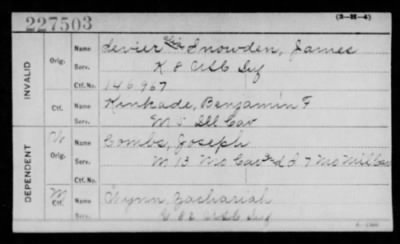 227503
(3-H-4)
INVALID
Orig.
Name Levier Snowden, James
Serv. K 8 Inf
Ctf. No. 146.967
Ctf.
Name Kinkade, Benjamin F
Serv. M Ill Cav
DEPENDENT
W
Orig.
Name Combs, Joseph
Serv. M 13 Mo Cav 7 Mo Mil Cav
Ctf. No.
M
Ctf.
Name Wynn, Zachariah
Serv. Inf